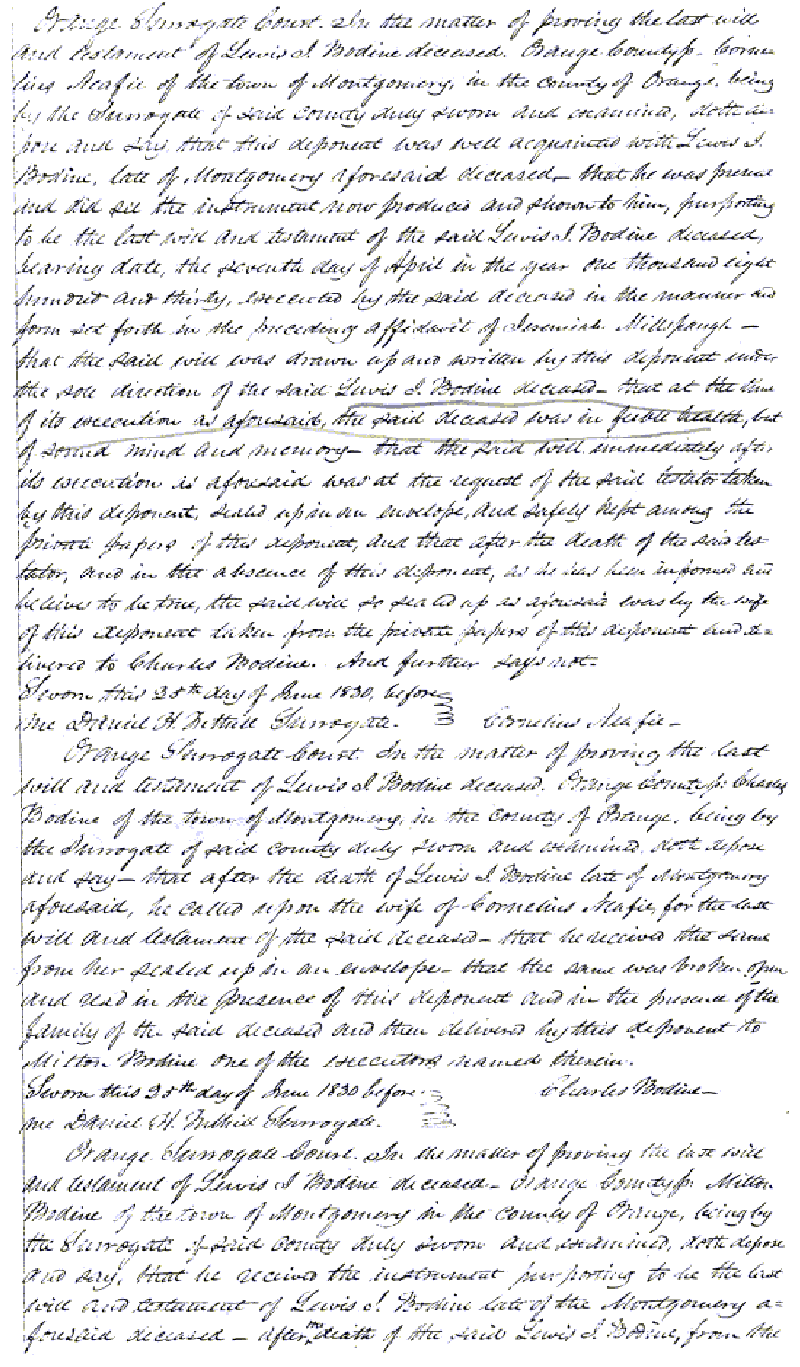 Orange Surrogate Court. In the matter of proving the last will
and testament of Lewis I. Bodine deceased. Orange County ss. Corne-
lius Neafie of the town of Montgomery, in the county of Orange, being
by the Surrogate of said county duly sworn and examined, doth de-
pose and say, that this deponent was well acquainted with Lewis I.
Bodine, late of Montgomery aforesaid deceased – that he was present
and did see the instrument now produced and shown to him, purporting
to be the last will and testament of the said Lewis I. Bodine deceased,
bearing date, the seventh day of April in the year one thousand eight
hundred and thirty, executed by the said deceased in the manner and
form set forth in the preceding affidavit of Jeremiah Millspaugh –
that the said will was drawn up and written by this deponent under
the sole direction of the said Lewis I. Bodine deceased – that at the time
of its execution as aforesaid, the said deceased was in feeble health, but
of sound mind and memory – that the said will immediately after
its execution as aforesaid was at the request of the said testator taken
by this deponent, sealed up in an envelope, and safely kept among the
private papers of this deponent, and that after the death of the said tes-
tator, and in the absence of this deponent, as he has been informed and
believes to be true, the said will so sealed up as aforesaid was by the wife
of this deponent taken from the private papers of this deponent and de-
livered to Charles Bodine. And further says not –
Sworn this 25th day of June 1830, before
me Daniel H. Tuthill Surrogate. Cornelius Neafie –
Orange Surrogate Court. In the matter of proving the last
will and testament of Lewis I Bodine deceased. Orange County ss. Charles
Bodine of the town of Montgomery, in the county of Orange, being by
the Surrogate of said county duly sworn and examined, doth depose
and say – that after the death of Lewis I. Bodine late of Montgomery
aforesaid, he called upon the wife of Cornelius Neafie, for the last
will and testament of the said deceased – that he received the same
from her sealed up in an envelope – that the same was broken open
and read in the presence of this deponent and in the presence of the
family of the said deceased and then delivered by this deponent to
Milton Bodine one of the executors named therein.
Sworn this 25th day of June 1830 before Charles Bodine –
me Daniel H. Tuthill Surrogate.
Orange Surrogate Court. In the matter of proving the last will
and testament of Lewis I Bodine deceased – Orange County ss. Milton
Bodine of the town of Montgomery in the county of Orange, being by
the Surrogate of said County duly sworn and examined, doth depose
and say, that he received the instrument purporting to be the last
will and testament of Lewis I. Bodine late of the Montgomery a-
foresaid deceased – after the death of the said Lewis I. Bodine, from the